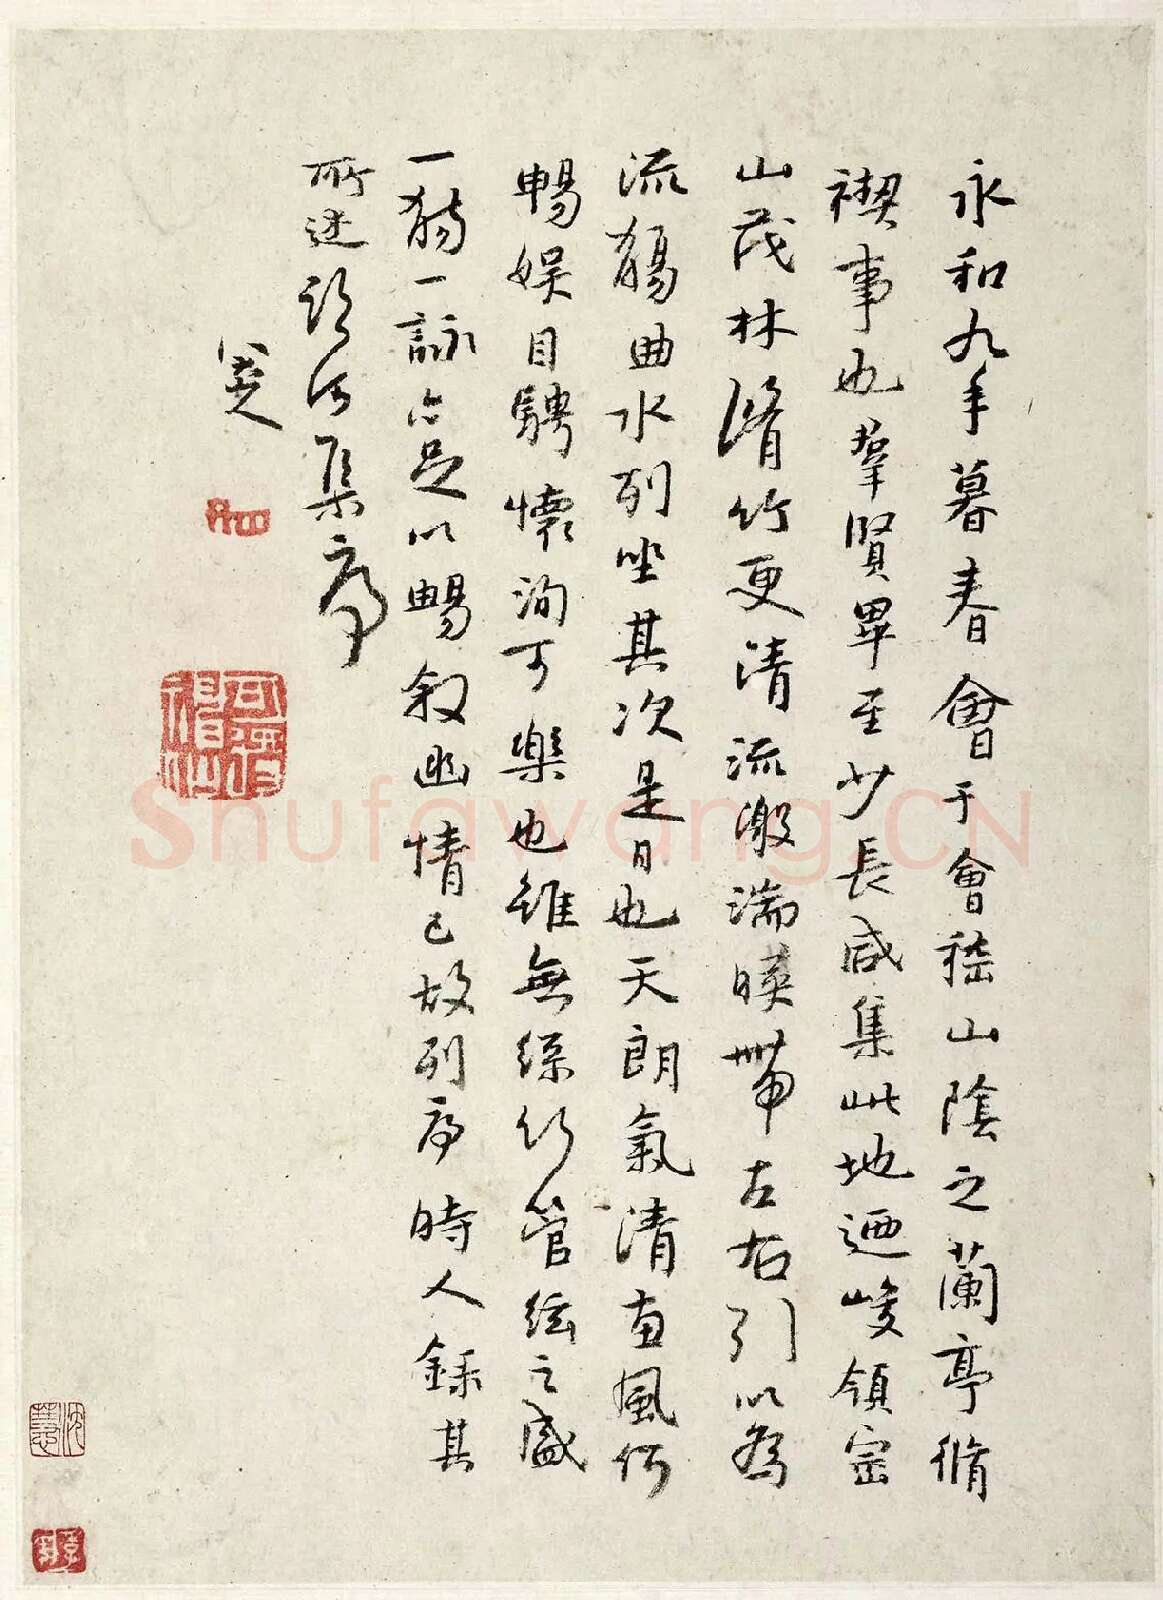 永和九年暮春會于會稽山陰之蘭亭脩
禊事也羣賢畢至少長咸集此地迺峻領崇
山茂林脩竹更清流激湍暎帶左右引以為
流觴曲水列坐其次是日也天朗氣清惠風和
暢娛目騁懷洵可樂也雖無絲竹管絃之盛
一觴一詠亦足以暢敘幽情已故列序時人錄其
所述臨河集序
八大山人
可得神仙
Shufawang.CN